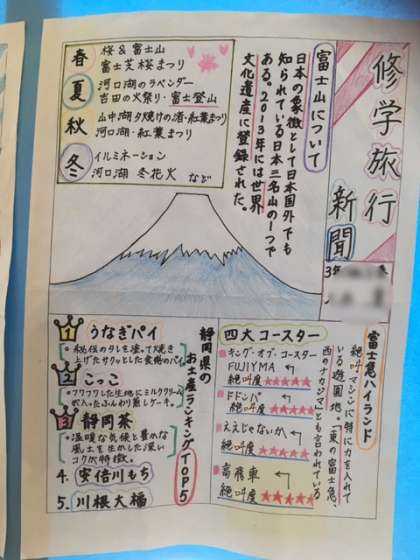 修学旅行
新聞
富士山について
日本の象徴として日本国外でも
知られている日本三名山の一つで
ある。2013年には世界
文化遺産に登録された。
春 桜&富士山
富士芝桜まつり
夏 河口湖のラベンダー
吉田の火祭り・富士登山
秋 山中湖夕焼けの渚・紅葉まつり
河口湖・紅葉まつり
冬 イルミネーション
河口湖 冬花火 など
富士急ハイランド
絶叫マシンに特に力を入れて
いる遊園地。「東の富士急、
西のナガシマ」とも言われている
四大コースター
キング・オブ・コースター
FUJIYMA
絶叫度★★★★★
ドドンパ
絶叫度★★★★★
ええじゃないか
絶叫度★★★★★
高飛車
絶叫度★★★★★
静岡県の
お土産ランキングTOP5
1 うなぎパイ
・秘伝のタレを塗って焼き
上げたサクッとした食感のパイ
2 こっこ
・フワフワした生地にミルククリーム
が入ったふんわり蒸しケーキ。
3 静岡茶
・温暖な気候と豊かな
風土を生かした深い
コクが特徴。
4. 安倍川もち
5. 川根大福